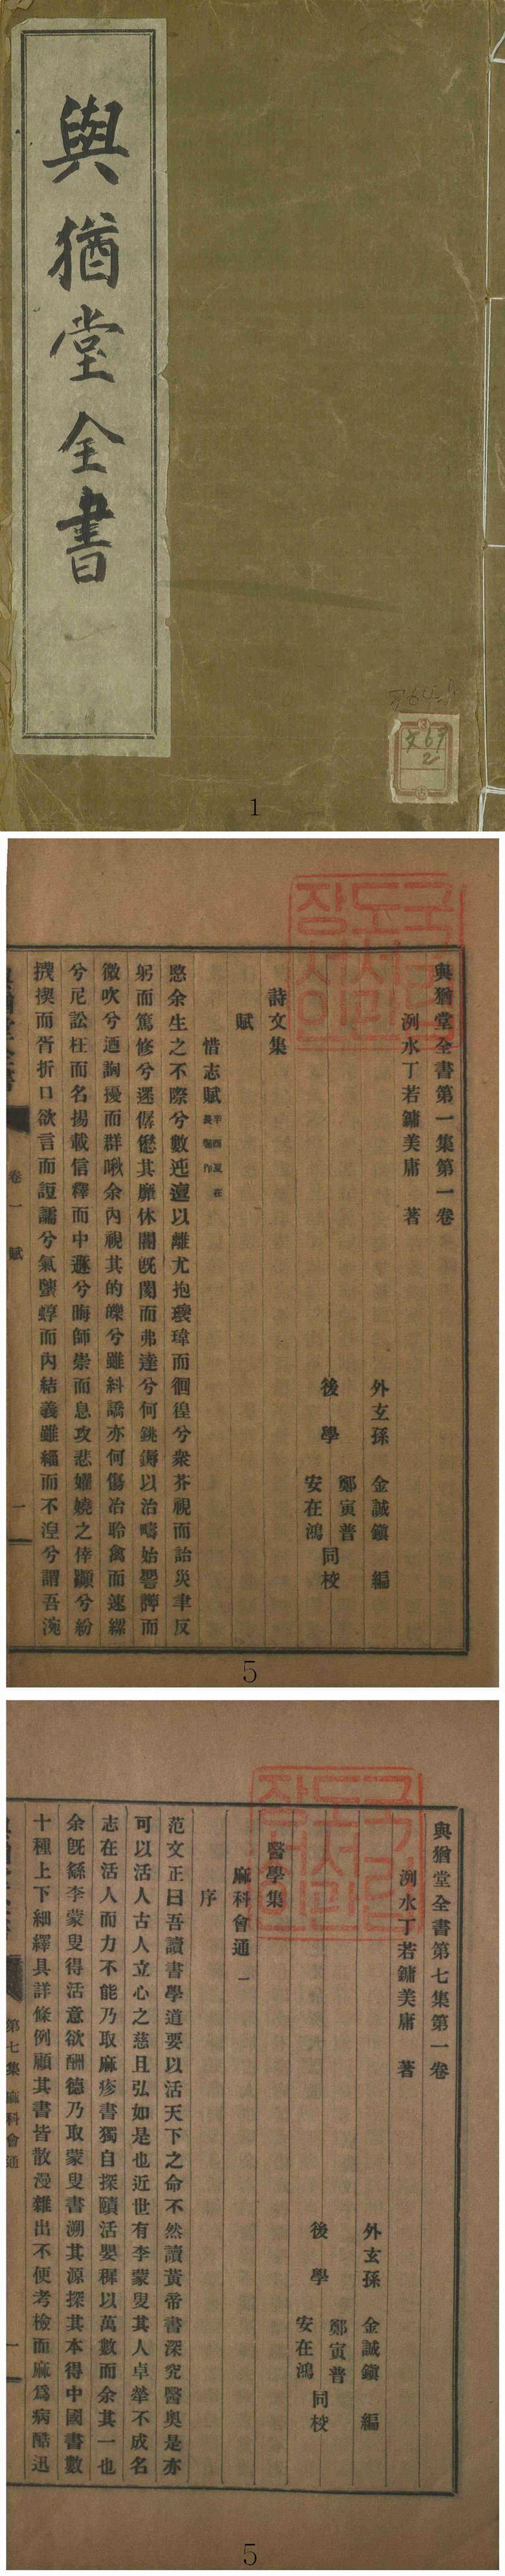 與猶堂全書
1
與猶堂全書第一集第一卷
洌水丁若鏞美庸 著
外玄孫 金誠鎭 編
後學 鄭寅普
安在鴻 同校
詩文集
賦
惜志賦
愍余生之不際兮數迍邅以離尤抱瓌瑋而徊徨兮衆芥視而詒災聿反
躬而篤修兮遝僝僽其靡休閶旣閡而弗達兮何銚鎒以治疇始謽誖而
微吹兮迺詢擾而群啾余內視其的皪兮雖糾譑亦何傷冶聆禽而速縲
兮尼訟枉而名揚載信釋而中遯兮晦師崇而息攻悲嬥嬈之倖顯兮紛
而胥折口欲言而讘兮氣蜳而內結義雖緬而不湟兮謂吾涴
卷一 賦
一
5
與猶堂全書第七集第一卷
洌水丁若鏞美庸 著
外玄孫 金誠鎭 編
後學 鄭寅普
安在鴻 同校
醫學集
麻科會通 一
序
范文正曰吾讀書學道要以活天下之命不然讀黃帝書深究醫奧是亦
可以活人古人立心之慈且弘如是也近世有李蒙叟其人卓犖不成名
志在活人而力不能乃取麻疹書獨自探賾活嬰穉以萬數而余其一也
余旣繇李蒙叟得活意欲酬德乃取蒙叟書溯其源探其本得中國書數
十種上下紬繹具詳條例顧其書皆散漫雜出不便考檢而麻爲病酷迅
第七集 麻科會通
一
5